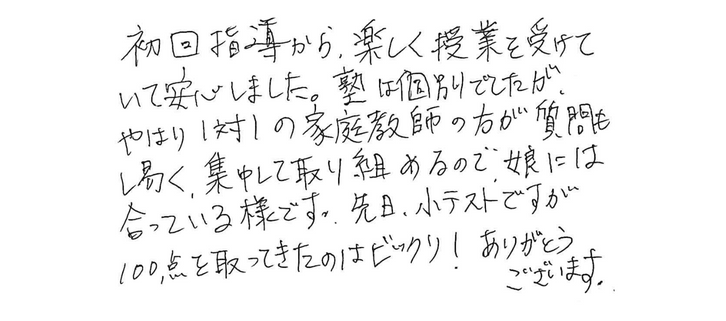 初回指導から、楽しく授業を受けて
いて安心しました。塾は個別でしたが、
やはり1対1の家庭教師の方が質問も
し易く、集中して取り組めるので、娘には
合っている様です。先日、小テストですが
100点を取ってきたのはビックリ！ありがとう
ございます。